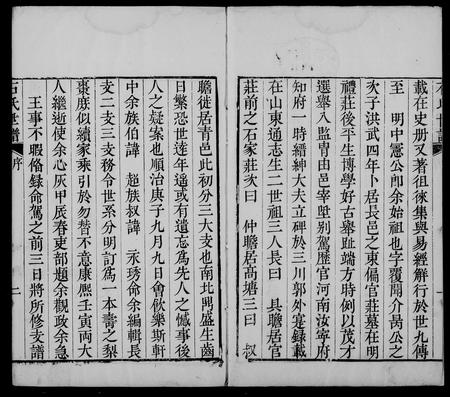 載在史册又著徂徠集與易經解行於世九傳
至 明中憲公卽余始祖也字覆開介昺公之
次子洪武四年卜居長邑之東偏官莊墓在明
禮莊後平生博學好古舉趾端方時例以茂才
選舉入監胄由邑宰墅别駕歷官河南汝寧府
知府一時縉紳大夫立碑於三川郭外寔録載
在山東通志生二世祖三人長曰 具瞻居官
莊前之石家莊次曰 仲瞻居髙塘三曰 叔
瞻徙居青邑此初分三大支也南北男盛生齒
日繁恐世逺年遥或有遺忘為先人之憾事後
人之疑案也順治庚子九月九日會飲樂斯軒
中余族伯諱 超族叔諱 永琇命余編輯長
支二支三支務令世系分明訂為一本壽之梨
棗庶似續家乘引於勿替不意康熈壬寅两大
人繼逝使余心灰甲辰春吏部題余觀政余急
王事不暇修録命駕之前三日將所修支譜
石氏世譜 序 二